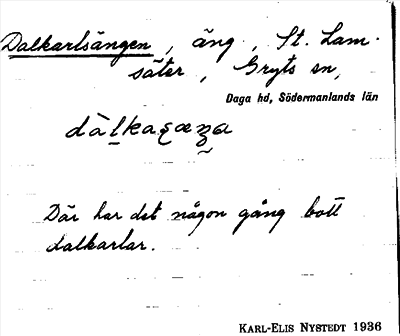 Dalkarlsängen, äng, St. Lam-
säter, Gryts sn,
Daga hd, Södermanlands län
Där har det någon gång bott
dalkarlar.
KARL-ELIS NYSTEDT 1936